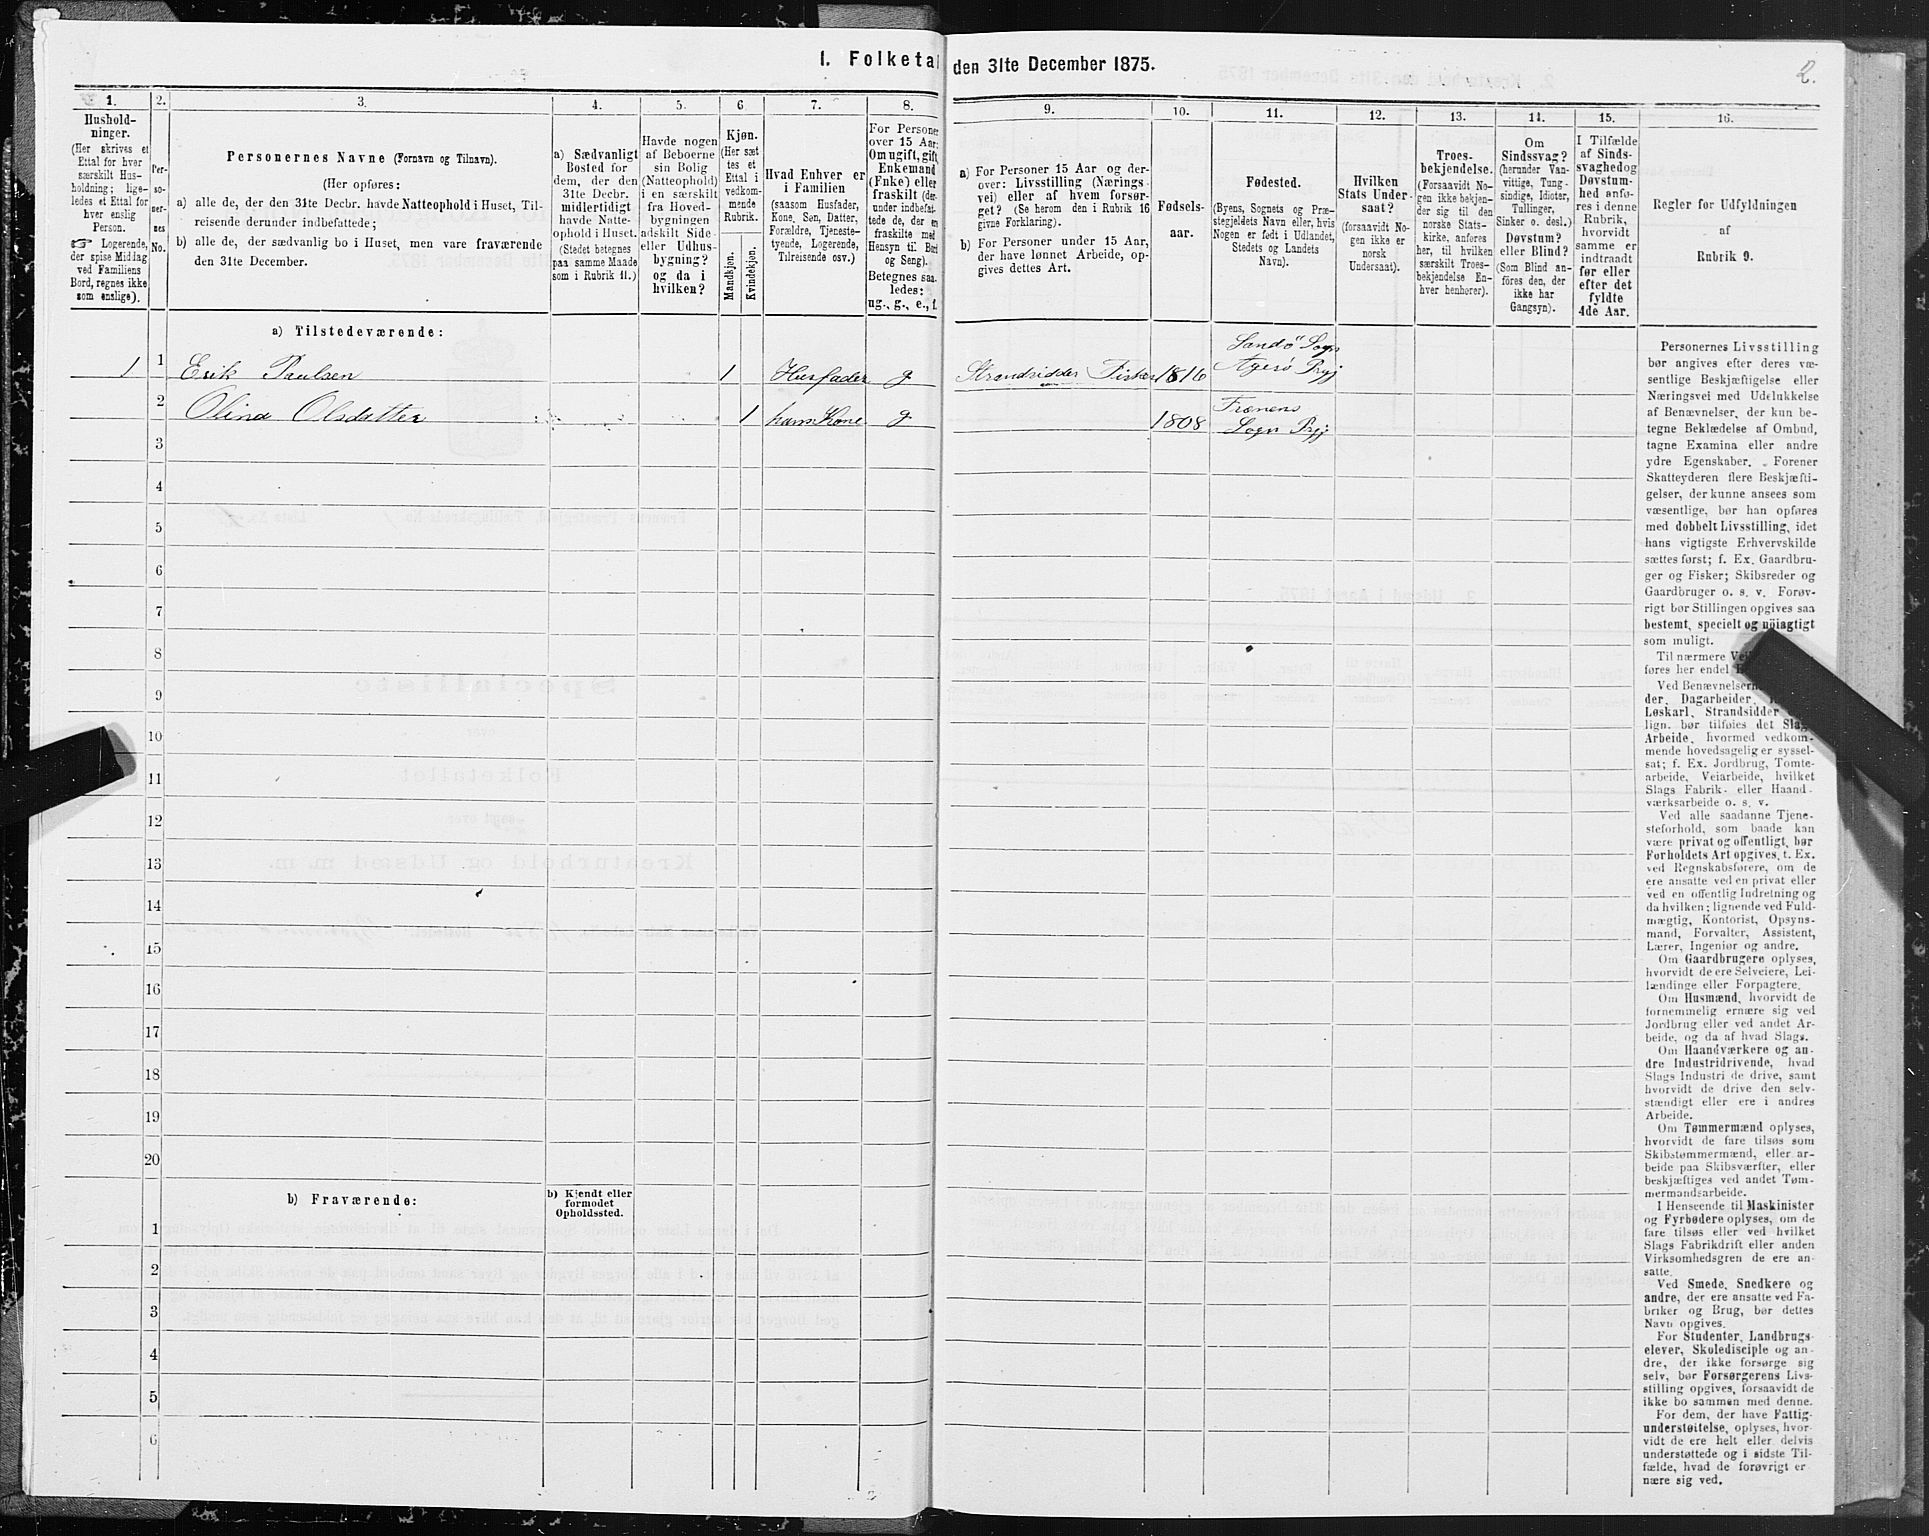 1. Folketal den 31te December 1875.
2.
1.
2.
3.
4.
5.
6
7.
8.
9.
10.
11.
12.
13.
14.
15.
16.
Hushold-
ninger.
(Her skrives et
Ettal for hver
særskilt Hus-
holdning; lige-
ledes et Ettal for
hver enslig
Person.
☞ Logerende,
der spise Middag
ved Familiens
Bord, regnes ikke
som enslige).
Per-
so-
ner-
nes
No.
Personernes Navne (Fornavn og Tilnavn).
(Her opføres:
a) alle de, der den 31te Decbr. havde Natteophold i Huset, Til-
reisende derunder indbefattede;
b) alle de, der sædvanlig bo i Huset, men vare fraværende
den 31te December.
a) Sædvanligt
Bosted for
dem, der den
31te Decbr.
midlertidigt
havde Natte-
ophold i Huset.
(Stedet betegnes
paa samme Maade
som i Rubrik 11.)
Havde nogen
af Beboerne
sin Bolig
(Natteophold)
i en særskilt
fra Hoved-
bygningen
adskilt Side-
eller Udhus-
bygning?
og da i
hvilken?
Kjøn.
(Her sæt-
tes et
Ettal i
vedkom-
mende
Rubrik.
Mandkjøn.
Kvindekjøn.
Hvad Enhver er
i Familien
(saasom Husfader,
Kone, Søn, Datter,
Forældre, Tjeneste-
tyende, Logerende,
Tilreisende osv.)
For Personer
over 15 Aar:
Om ugift, gift,
Enkemand
(Enke) eller
fraskilt (der-
under indbefat-
tede de, der en
fraskilte med
Hensyn til Bord
og Seng).
Betegnes saa-
ledes:
ug., g., e., f.
a) For Personer 15 Aar og der-
over: Livsstilling (Nærings
vei) eller af hvem forsør-
get? (Se herom den i Rubrik 16
givne Forklaring).
b) For Personer under 15 Aar,
der have lønnet Arbeide, op-
gives dettes Art.
Fødsels-
aar.
Fødested.
(Byens, Sognets og Præ-
stegjeldets Navn eller, hvis
Nogen er født i Udlandet,
Stedets og Landets
Navn).
Hvilken
Stats Under-
saat?
(forsaavidt No-
gen ikke er
norsk
Undersaat).
Troes-
bekjendelse.
(Forsaavidt No-
gen ikke bekjen-
der sig til den
norske Stats-
kirke, anføres
her, til hvilken
særskilt Troes-
bekjendelse En-
hver henhører).
Om
Sindssvag?
(herunder Van-
vittige, Tung-
sindige, Idioter,
Tullinger,
Sinker o. desl.)
Døvstum?
eller Blind?
(Som Blind an-
føres den, der
ikke har
Gangsyn).
I Tilfælde
af Sinds-
svaghed og
Døvstum-
hed anfø-
res i denne
Rubrik,
hvorvidt
samme er
indtraadt
før eller
efter det
fyldte
4de Aar.
Regler for Udfyldningen
af
Rubrik 9.
a) Tilstedeværende:
1 1 Erik Paulsen 1 Husfader g Strandsidder Fisker 1816 Sandø Sogn
Agerø Prgj
2 Olina Olsdatter 1 hans Kone g 1808 Frænens
Sogn Prgj
3
4
5
6
7
8
9
10
11
12
13
14
15
16
17
18
19
20
b) Fraværende:
b) Kjendt eller
formodet
Opholdssted.
1
2
3
4
5
6
Personernes Livsstilling
bør angives efter deres væ-
sentlige Beskjæftigelse eller
Næringsvei med Udelukkelse
af Benævnelser, der kun be-
tegne Beklædelse af Ombud,
tagne Examina eller andre
ydre Egenskaber. Forener
Skatteyderen flere Beskjæfti-
gelser, der kunne ansees som
væsentlige, bør han opføres
med dobbelt Livsstilling, idet
hans vigtigste Erhvervskilde
sættes først; f. Ex. Gaardbru-
ger og Fisker; Skibsreder og
Gaardbruger o. s. v. Forøv-
rigt bør Stillingen opgives saa
bestemt, specielt og nøiagtigt
som muligt.
Til nærmere
føres her endel
Ved Benævnelserne
der, Dagarbeider,
Løskarl, Strandsidder
lign. bør tilføies det Slags
Arbeide, hvormed vedkom-
mende hovedsagelig er syssel-
sat; f. Ex. Jordbrug, Tomte-
arbeide, Veiarbeide, hvilket
Slags Fabrik- eller Haand-
værksarbeide o. s. v.
Ved alle saadanne Tjene-
steforhold, som baade kan
være privat og offentligt, bør
Forholdets Art opgives, t. Ex.
ved Regnskabsførere, om de
ere ansatte ved en privat eller
ved en offentlig Indretning og
da hvilken; lignende ved Fuld-
mægtig, Kontorist, Opsyns-
mand, Forvalter, Assistent,
Lærer, Ingeniør og andre.
Om Gaardbrugere oplyses,
hvorvidt de ere Selveiere, Lei-
lændinge eller Forpagtere.
Om Husmænd, hvorvidt de
fornemmelig ernære sig ved
Jordbrug eller ved andet Ar-
beide, og da af hvad Slags.
Om Haandværkere og an-
dre Industridrivende, hvad
Slags Industri de drive, samt
hvorvidt de drive den selv-
stændigt eller ere i andres
Arbeide.
Om Tømmermænd oplyses,
hvorvidt de fare tilsøs som
Skibstømmermænd, eller ar-
beide paa Skibsværfter, eller
beskjæftiges ved andet Tøm-
mermandsarbeide.
I Henseende til Maskinister
og Fyrbødere oplyses, om de
fare tilsøs eller ved hvilket
Slags Fabrikdrift eller anden
Virksomhedsgren de ere an-
satte.
Ved Smede, Snedkere og
andre, der ere ansatte ved Fa-
briker og Brug, bør dettes
Navn opgives.
For Studenter, Landbrugs-
elever, Skoledisciple og an-
dre, der ikke forsørge sig
selv, bør Forsørgerens Livs-
stilling opgives, forsaavidt de
ikke bo sammen med denne.
For dem, der have Fattig-
understøttelse, oplyses, hvor-
vidt de ere helt eller delvis
understøttede og i sidste Til-
fælde, hvad de forøvrigt er-
nære sig ved.